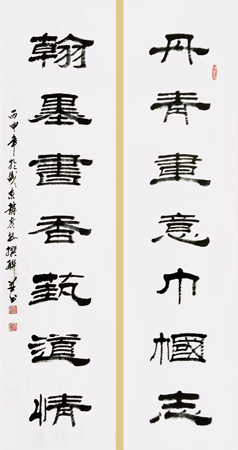 丹青畫意巾幗志
翰墨書香藝道情
丙申年於撰聯并書